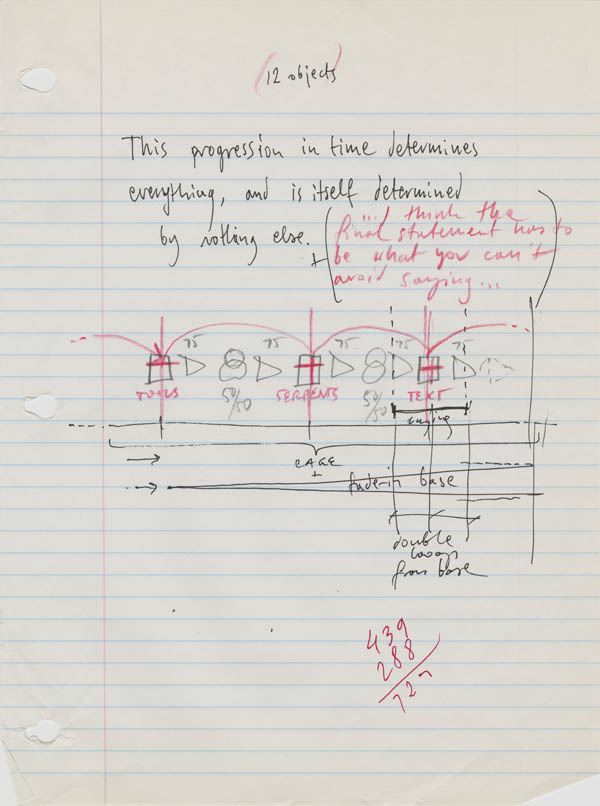 12 objects
This progression in time determines
everything, and is itself determined
by nothing else.
+ (... I think the
final statement has to
be what you can't
avoid saying...)
75 75 75 75 75
TOOLS 50/50 SERPENTS 50/50 TEXT
CAGE
+
fade-in base
double
loops
from base
439
288
727